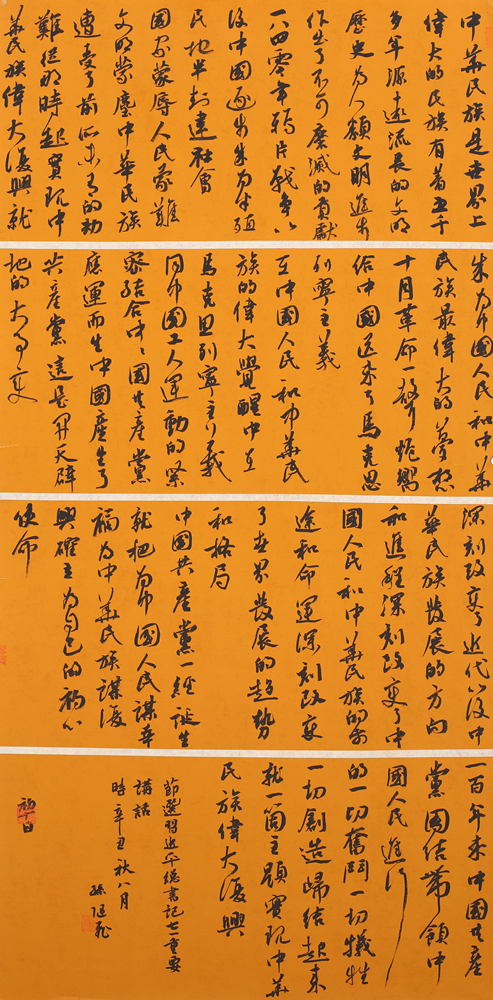 中華民族是世界上
偉大的民族有著五千
多年源遠流長的文明
歷史為人類文明進步
作出了不可磨滅的貢獻
一八四零年鴉片戰爭以
後中國逐步成為半殖
民地半封建社會
國家蒙辱人民蒙難
文明蒙塵中華民族
遭受了前所未有的劫
難從那時起實現中
華民族偉大復興就
成為中國人民和中華
民族最偉大的夢想
十月革命一聲炮響
給中國送來了馬克思
列寧主義
在中國人民和中華民
族的偉大覺醒中在
馬克思列寧主義
同中國工人運動的緊
密結合中中國共產黨
應運而生中國產生了
共產黨這是開天闢
地的大事變
深刻改變了近代以後中
華民族發展的方向
和進程深刻改變了中
國人民和中華民族的前
途和命運深刻改變
了世界發展的趨勢
和格局
中國共產黨一經誕生
就把為中國人民謀幸
福為中華民族謀復
興確立為自己的初心
使命
一百年來中國共產
黨團結帶領中
國人民進行
的一切奮鬥一切犧牲
一切創造歸結起來
就一個主題實現中華
民族偉大復興
節選習近平總書記七一重要
講話
時辛丑秋八月
孫